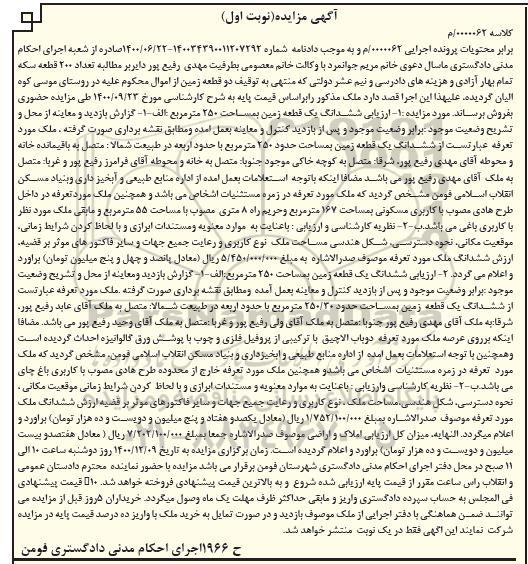 آگهی مزایده(نوبت اول)
کلاسه ۰۰۰۰۰۶۲/م
برابر محتویات پرونده اجرایی ۰۰۰۰۰۶۲/م و به موجب دادنامه شماره ۱۴۰۰۳۴۳۹۰۰۱۱۲۰۷۲۹۲-۱۴۰۰/۰۶/۲۲صادره از شعبه اجرای احکام
مدنی دادگستری ماسال دعوی خانم مریم جوانمرد با وکالت خانم معصومی بطرفیت مهدی رفیع پور دایربر مطالبه تعداد ۲۰۰ قطعه سکه
تمام بهار آزادی و هزینه های دادرسی و نیم عشر دولتی که منتهی به توقیف دو قطعه زمین از اموال محکوم علیه در روستای موسی کوه
الیان گردیده، علیهذا این اجرا قصد دارد ملک مذکور رابراساس قیمت پایه به شرح کارشناسی مورخ ۱۴۰۰/۰۹/۲۳ طی مزایده حضوری
بفروش برساند. مورد مزایده :۱-ارزیابی ششدانگ یک قطعه زمین بمساحت ۲۵۰ مترمربع :الف-۱- گزارش بازدید و معاینه از محل و
تشریح وضعیت موجود :برابر وضعیت موجود و پس از بازدید کنترل و معاینه بعمل آمده ومطابق نقشه برداری صورت گرفته ، ملک مورد
تعرفه عبارتست از ششدانگ یک قطعه زمین بمساحت حدود ۲۵۰ مترمربع با حدود اربعه در طبیعت شمالا : متصل به باقیمانده خانه
و محوطه آقای مهدی رفیع پور، شرقا: متصل به کوچه خاکی موجود جنوبا: متصل به خانه و محوطه آقای فرامرز رفیع پور و غربا: متصل
به ملک آقای مهدی رفیع پور می باشد مضافا اینکه باتوجه استعلامات بعمل آمده از اداره منابع طبیعی و آبخیز داری وبنیاد مسکن
انقلاب اسلامی فومن مشخص گردید که ملک مورد تعرفه در زمره مستثنیات اشخاص می باشد و همچنین ملک مورد تعرفه در داخل
طرح هادی مصوب با کاربری مسکونی بمساحت ۱۶۷ مترمربع وحریم راه ۸ متری مصوب با مساحت ۵۵ مترمربع و مابقی ملک مورد نظر
با کاربری باغی می باشد.ب-۲- نظریه کارشناسی و ارزیابی : باعنایت به موارد معنویه ومستندات ابرازی و با لحاظ کردن شرایط زمانی،
موقعیت مکانی، نحوه دسترسی، شکل هندسی مساحت ملک نوع کاربری و رعایت جمیع جهات و سایر فاکتور های موثر بر قضیه،
ارزش ششدانگ ملک مورد تعرفه موصوف صدرالاشاره به مبلغ ۵/۴۵۰/۰۰۰/۰۰۰ ریال (معادل پانصد و چهل و پنج میلیون تومان) براورد
و اعلام می گردد. ۲- ارزیابی ششدانگ یک قطعه زمین بمساحت ۲۵۰ مترمربع:الف-۱- گزارش بازدید ومعاینه از محل و تشریح وضعیت
موجود :برابر وضعیت موجود و پس از بازدید کنترل و معاینه بعمل آمده ومطابق نقشه برداری صورت گرفته .ملک مورد تعرفه عبارتست
از ششدانگ یک قطعه زمین بمساحت حدود ۲۵۰/۳۰ مترمربع با حدود اربعه در طبیعت شمالا: متصل به ملک آقای عابد رفیع پور،
شرقا:به ملک آقای مهدی رفیع پور جنوبا :متصل به ملک آقای ولی رفیع پور و غربا :متصل به ملک آقای وحید رفیع پور می باشد. مضافا
اینکه برروی عرصه ملک مورد تعرفه دوباب آلاچیق با ترکیبی از پروفیل فلزی و چوب با پوشش ورق گالوانیزه احداث گردیده است
وهمچنین با توجه استعلامات بعمل آمده از اداره منابع طبیعی وابخیزداری و بنیاد مسکن انقلاب اسلامی فومن، مشخص گردید که ملک
مورد تعرفه در زمره مستثنیات اشخاص می باشدو همچنین ملک مورد تعرفه خارج از محدوده طرح هادی مصوب با کاربری باغ چای
می باشد.ب-۲- نظریه کارشناسی وارزیابی : باعنایت به موارد معنویه و مستندات ابرازی و با لحاظ کردن شرایط زمانی موقعیت مکانی ،
نحوه دسترسی، شکل هندسی مساحت ملک ، نوع کاربری و رعایت جمیع جهات و سایر فاکتورهای موثر بر قضیه ارزش ششدانگ ملک
مورد تعرفه موصوف صدرالاشاره بمبلغ ۱/۷۵۲/۱۰۰/۰۰۰ ریال (معادل یکصدو هفتاد و پنج میلیون و دوویست و ده هزار تومان) براورد و
اعلام میگردد. النهایه، میزان کل ارزیابی املاک و اراضی موصوف صدرالاشاره جمعا بمبلغ ۷/۲۰۲/۱۰۰/۰۰۰ ریال ( معادل هفتصدو بیست
میلیون و دویست و ده هزار تومان) براورد و اعلام گردیده است. زمان برگزاری مزایده به تاریخ ۱۴۰۰/۱۲/۰۹ روز دوشنبه ساعت ۱۰ الی
۱۱ صبح در محل دفتر اجرای احکام مدنی دادگستری شهرستان فومن برقرار می باشد مزایده با حضور نماینده محترم دادستان عمومی
و انقلاب راس ساعت مقرر از قیمت پایه ارزیابی شده شروع و به بالاترین قیمت پیشنهادی فروخته خواهد شد. ۱۰٪ قیمت پیشنهادی
فی المجلس به حساب سپرده دادگستری واریز و مابقی حداکثر ظرف مهلت یک ماه وصول میگردد. خریداران ۵روز قبل از مزایده می
توانند ضمن هماهنگی با دفتر اجرایی از ملک موصوف بازدید و در صورت تمایل به خرید ملک با واریز ده درصد قیمت پایه در مزایده
شرکت نمایند این آگهی فقط در یک نوبت منتشر خواهد شد.
ح ۱۹۶۶اجرای احکام مدنی دادگستری فومن